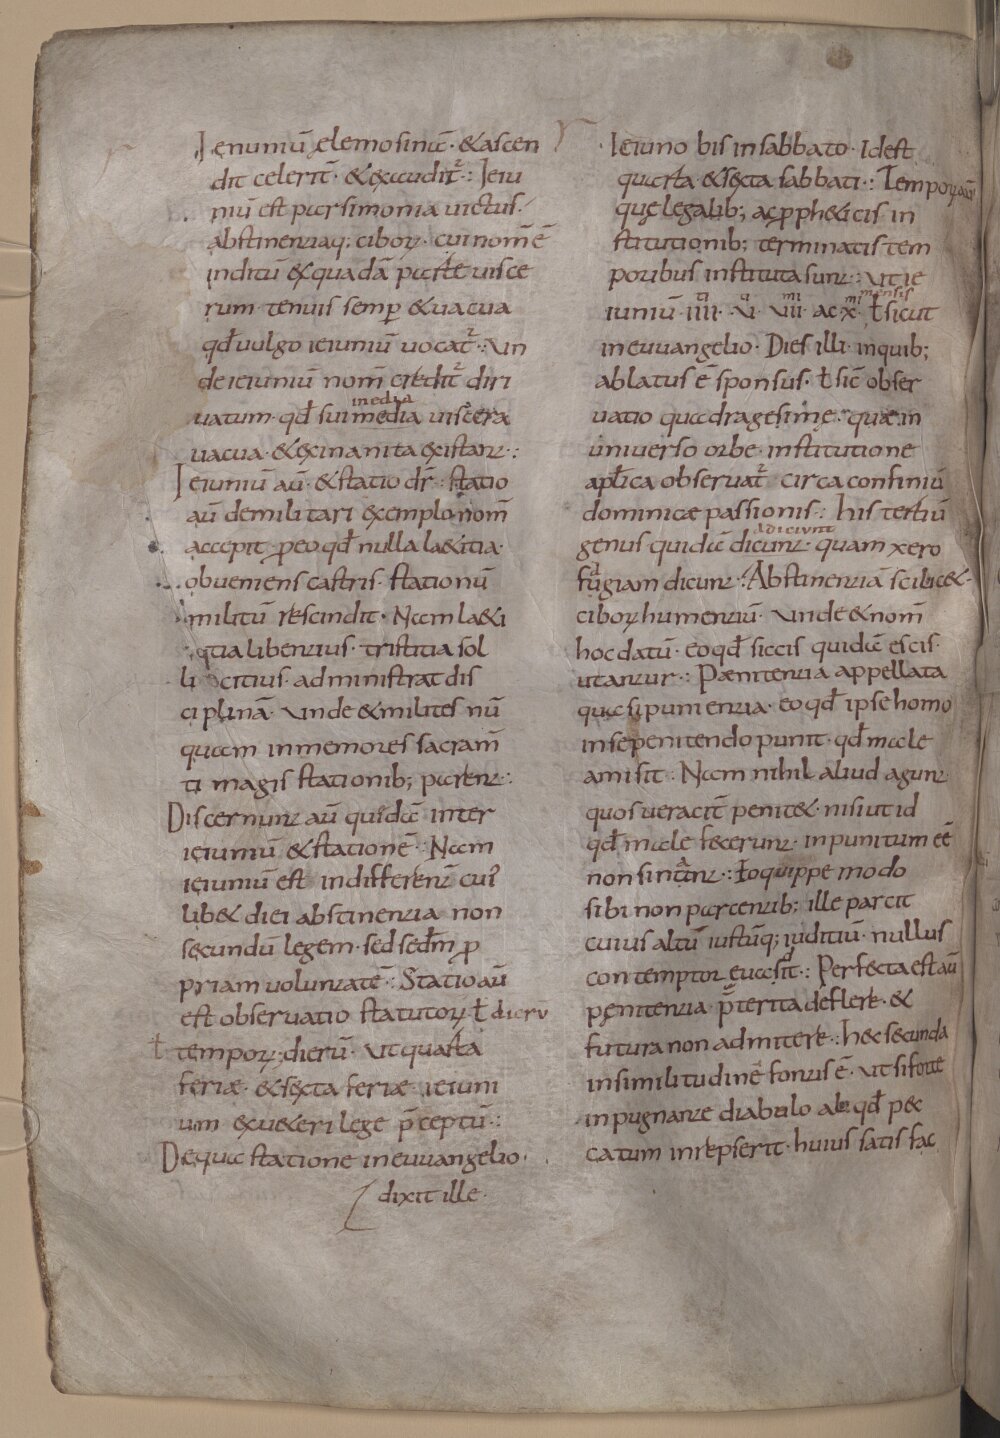 Ieiuniū elemosinā · &ascen
dit celerit̄ · &exaudit̄ :· Ieiu
niū est parsimonia uictus ·
abstinentiaq; ciboꝝ · cui nom̄ ē
inditū exquadā parte uisce
rum · tenuis semp̄ &uacua
qđ uulgo ieiuniū uocat̄ · Un
de ieiuniū nom̄ credit̄ diri
inedia
uatum · qđ sui media uiscera
uacua · &exinanita existant :·
Ieiuniū aū · &statio dr̄ · statio
aū demilitari exemplo nom̄
accepit ꝓeo qđ nulla la&itia ·
obueniens castris · stationū
militū rescindit · Nam la&i
tia libentius · tristitia sol
li citius · administrat dis
ciplinā · Unde &milites nū
quam inmemores sacram̄
ti magis stationib; parent :·
Discernunt aū quidā inter
ieiuniū &statione̅ · Nam
ieiuniū est indifferent̄ cui'
lib& diei abstinentia non
secundū legem · sed sedm̄ ꝓ
priam uoluntatē :· Statio aū
est obseruatio statutoꝝ ł dierū
ł tempoꝝ; dierū · Ut quarta
feriæ · &sexta feriæ ieiuni
um exueteri lege p̄ceptū :·
Dequa statione ineuuangelio ·
dixit ille ·
Ieiuno bis insabbato · Idest
quarta &sexta sabbati :· Tempoꝝ aū
quę legalib; ac ꝓph&icis in
stitutionib; terminatis tem
poribus instituta sunt :· Ut ie
mensis
iuniū · iiii · ui · uiii · ac x · ł sicut
ineuuangelio · Dies illi inquib;
ablatus ē sponsus · ł sic̄ obser
uatio quadragesime :· quæ in
uniuerso orbe · institutione
apłica obseruat̄ circa confiniū
dominicæ passionis :· his tertiū
adiciunt
genus quidā dicunt · quam xero
fagiam dicunt · Abstinentiā scilic& ·
ciboꝝ humentiū · Unde &nom̄
hoc datū · eo qđ siccis quidā escis ·
utantur :· Pænitentia appellata
quasi punientia · eo qđ ipse homo
insepenitendo punit · qđ male
amisit : Nam nihil aliud agunt
quos ueracit̄ penit& · nisi ut id
qđ male fecerunt · inpunitum eē
non sinant :· Eo quippe modo
sibi non parcentib; ille parcit
cuius altū iustūq; iuditiū · nullus
contemptor euasit :· Perfecta est aū
pęnitentia p̄terita deflere · &
futura non admittere :· hec secunda
insimilitudinē fontis ē · ut si forte
inpugnante diabulo aliqđ pec
catum inrepserit · huius satisfac